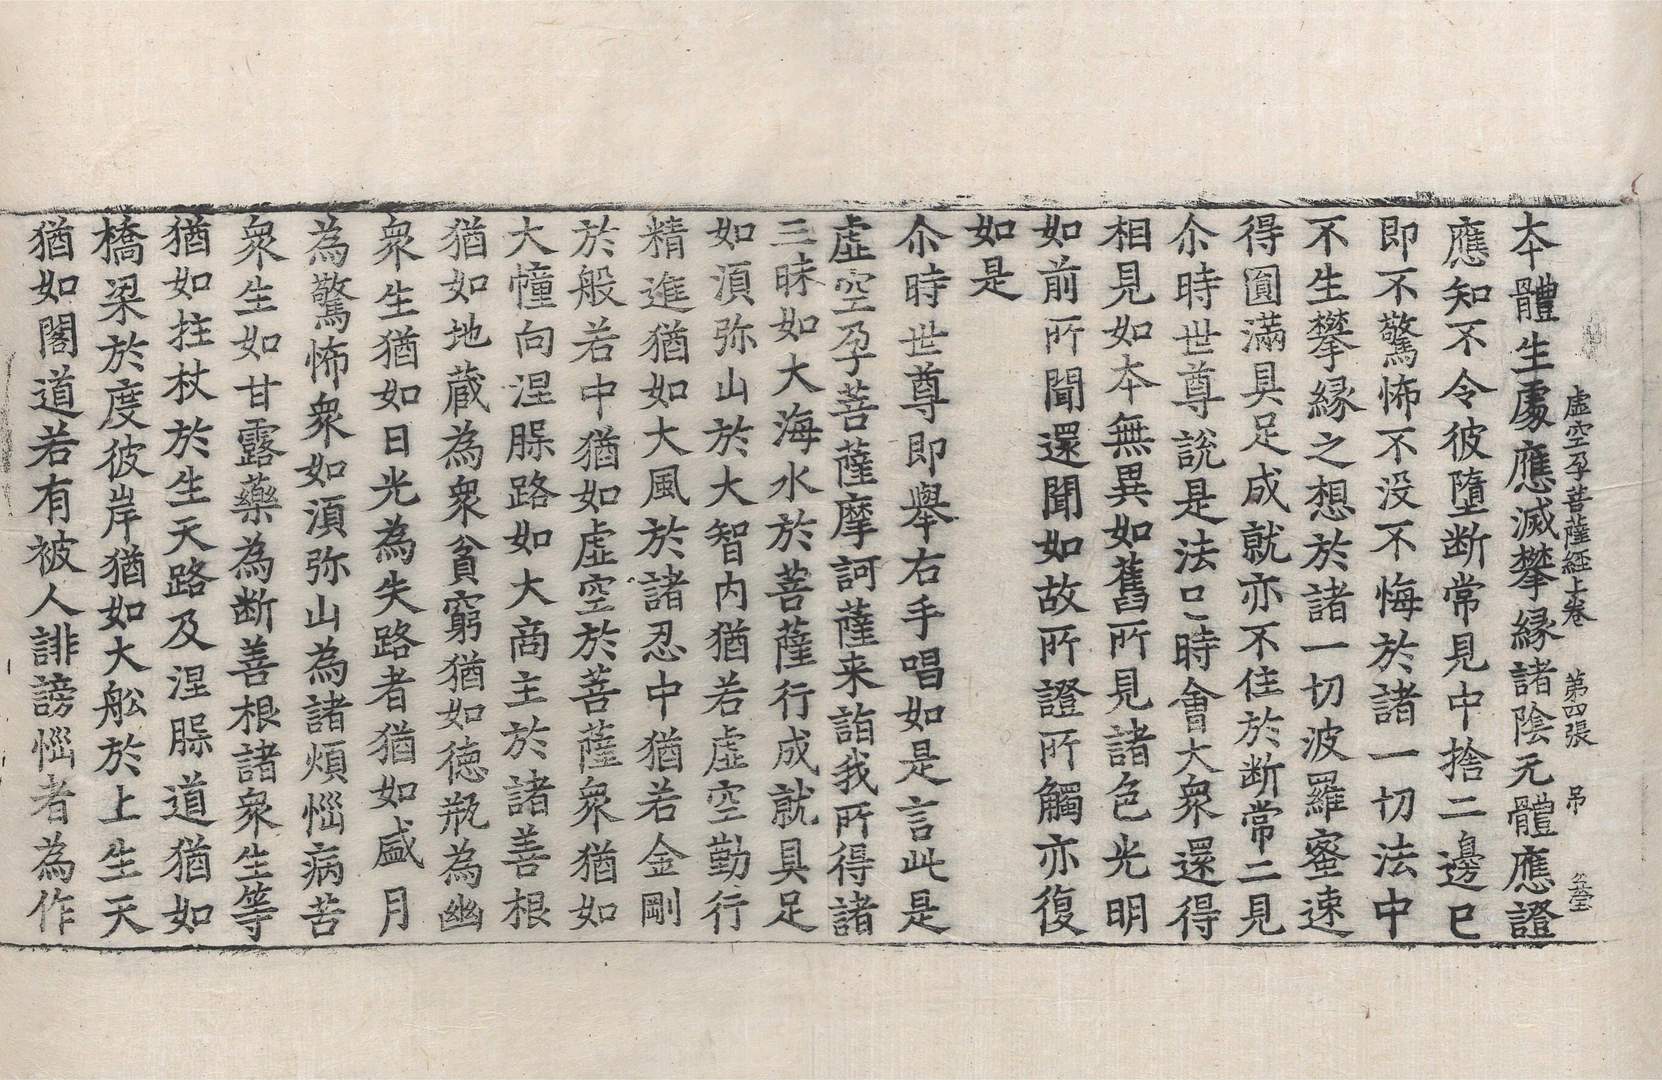 虛空孕菩薩經上卷　第四張　吊
夲體生處應滅攀緣諸陰无體應證
應知不令彼墮断常見中捨二邊已
即不驚怖不没不悔於諸一切法中
不生攀緣之想於諸一切波羅蜜速
得圓滿具足成就亦不住於断常二見
尒時世尊說是法已時會大衆還得
相見如夲無異如舊所見諸色光明
如前所聞還聞如故所證所觸亦復
如是
尒時世尊即舉右手唱如是言此是
虛空孕菩薩摩訶薩来詣我所得諸
三昧如大海水於菩薩行成就具足
如湏弥山於大智内猶若虛空勤行
精進猶如大風於諸忍中猶若金剛
於般若中猶如虛空於菩薩衆猶如
大幢向涅槃路如大商主於諸善根
猶如地蔵為衆貧窮猶如德瓶為幽
衆生猶如日光為失路者猶如盛月
為驚怖衆如湏弥山為諸煩惱病苦
衆生如甘露藥為断善根諸衆生等
猶如拄杖於生天路及涅槃道猶如
橋梁於度彼岸猶如大舩於上生天
猶如閣道若有被人誹謗惱者為作